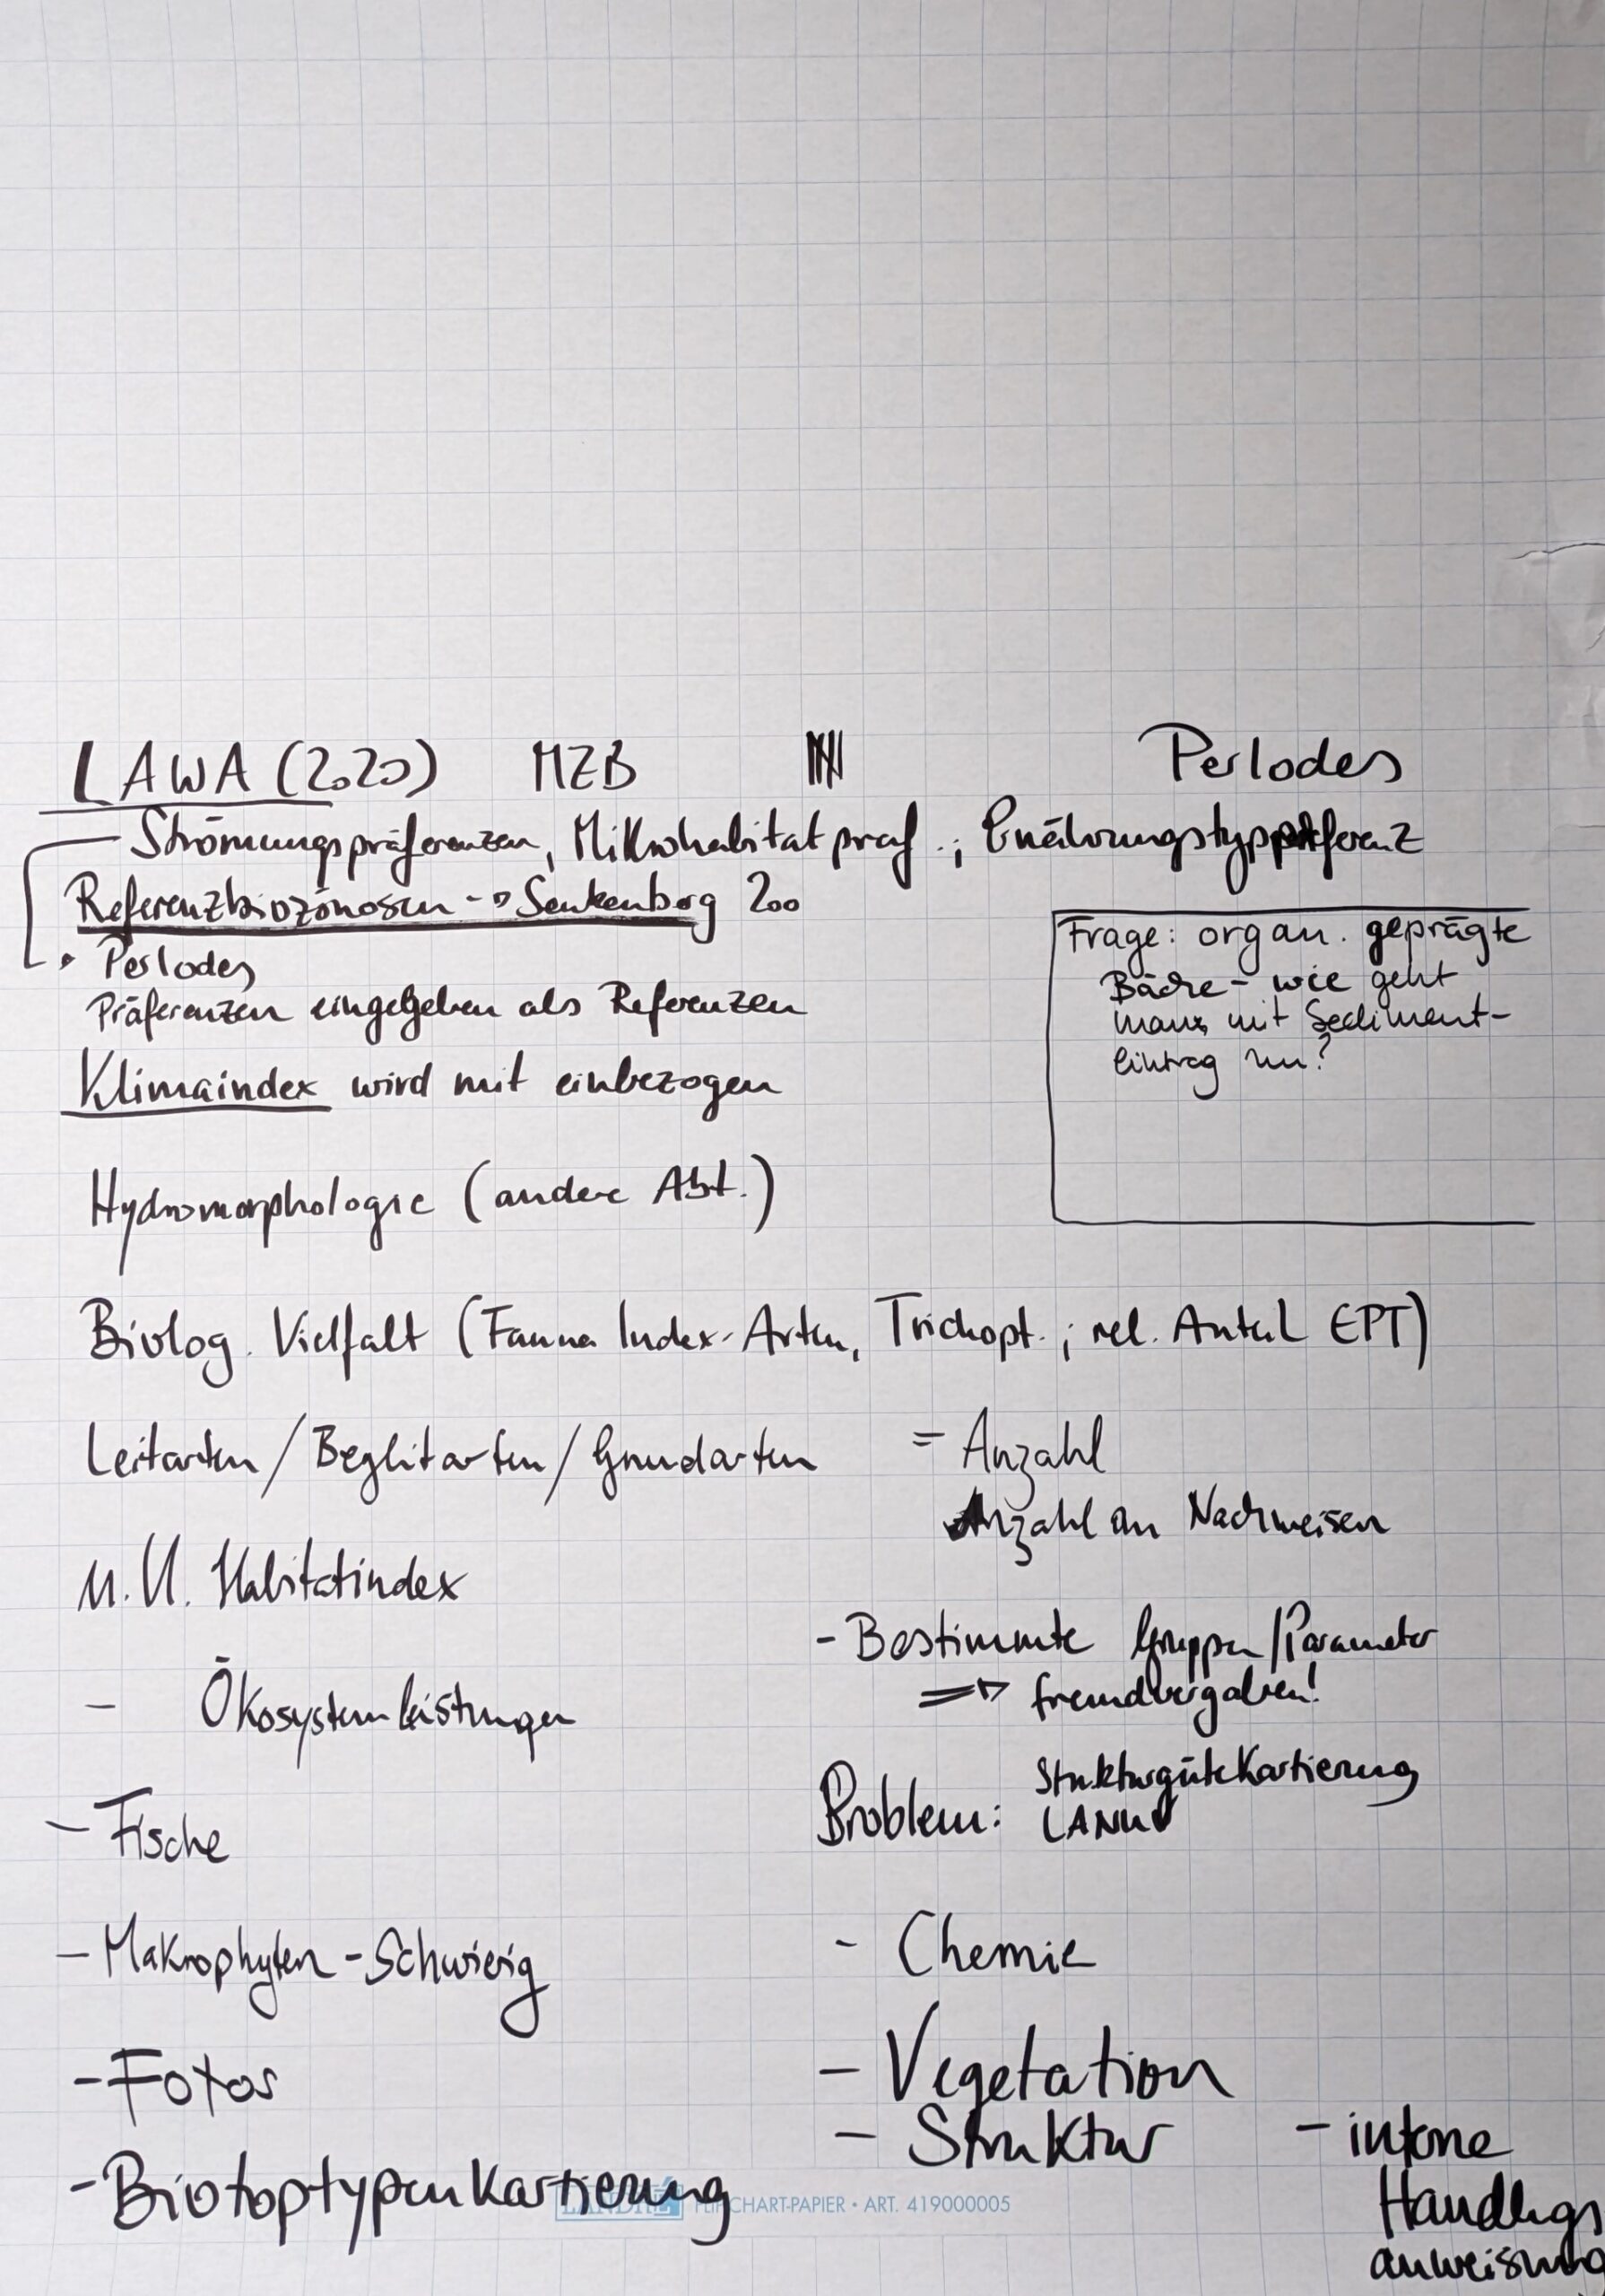 LAWA (2020) MZB Perlodes
Strömungspräferenzen, Mikrohabitatpräf.; Ernährungstyppräferenz
Referenzbiozönosen -> Senkenberg 200
Perlodes
Präferenzen eingegeben als Referenzen
Klimaindex wird mit einbezogen
Frage: organ. geprägte
Bäche - wie geht
man mit Sediment-
eintrag um?
Hydromorphologie (andere Abt.)
Biolog. Vielfalt (Fauna Index-Arten, Trichopt.; rel. Anteil EPT)
Leitarten / Begleitarten / Grundarten = Anzahl
Anzahl an Nachweisen
u.U. Habitatindex
- Bestimmte Gruppen / Parameter
=> fremdvergaben!
- Ökosystemleistungen
Problem: Strukturgütekartierung
LANUV
- Fische
- Makrophyten - Schwierig
- Chemie
- Fotos
- Vegetation
- Struktur
- interne
Handlgs
anweisung
- Biotoptypenkartierung
LANDRÉ FLIPCHART-PAPIER • ART. 419000005